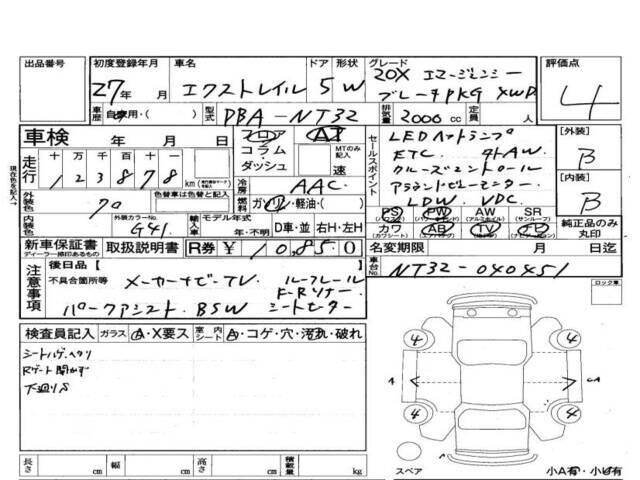 出品番号 初度登録年月 車名 ドア 形状 グレード 評価点
27年 月 エクストレイル 5 W 20X エマージェンシー
ブレーキPKG XWD 4
車歴 自家用・( ) 型式 DBA-NT32 排気量 2000cc 定員 人
車検 年 月 日 フロア コラム・ダッシュ AT MTのみ記入 速
走行 十万千百十一 123878 km
冷房 AAC
燃料 ガソリン・軽油・( )
外装色 クロ 色替車は色替と記入
内装色 外装カラーNo. G41 輸入車 モデル年式 年・不明 D車・並 右H・左H
セールスポイント
LEDヘッドランプ
ETC 外AW
クルーズコントロール
アラウンドビューモニター
LDW VDC
[外装] B
[内装] B
PS PW AW SR
(パワステ) (パワーウインド) (アルミホイル) (サンルーフ)
カワ AB TV ナビ
(カワシート) (エアバッグ)
純正品のみ丸印
新車保証書 取扱説明書 R券 ¥10,850 名変期限 月 日迄
ディーラー捺印あるもの
車台No. NT32-040451
注意事項 後日品[ ]
不具合箇所等 メーカーナビ-TV ルーフレール
F-Rソナー
パークアシスト BSW シートヒーター
ロック車
検査員記入 ガラス A・X要ス 室内シート A・コゲ・穴・汚れ・破れ
シートハゲ、ヘタリ
Rゲート開かず
下廻りS
4 4
A
4 4
長さ cm 幅 cm 高さ cm 積載量 kg
スペア 小A有・小B有